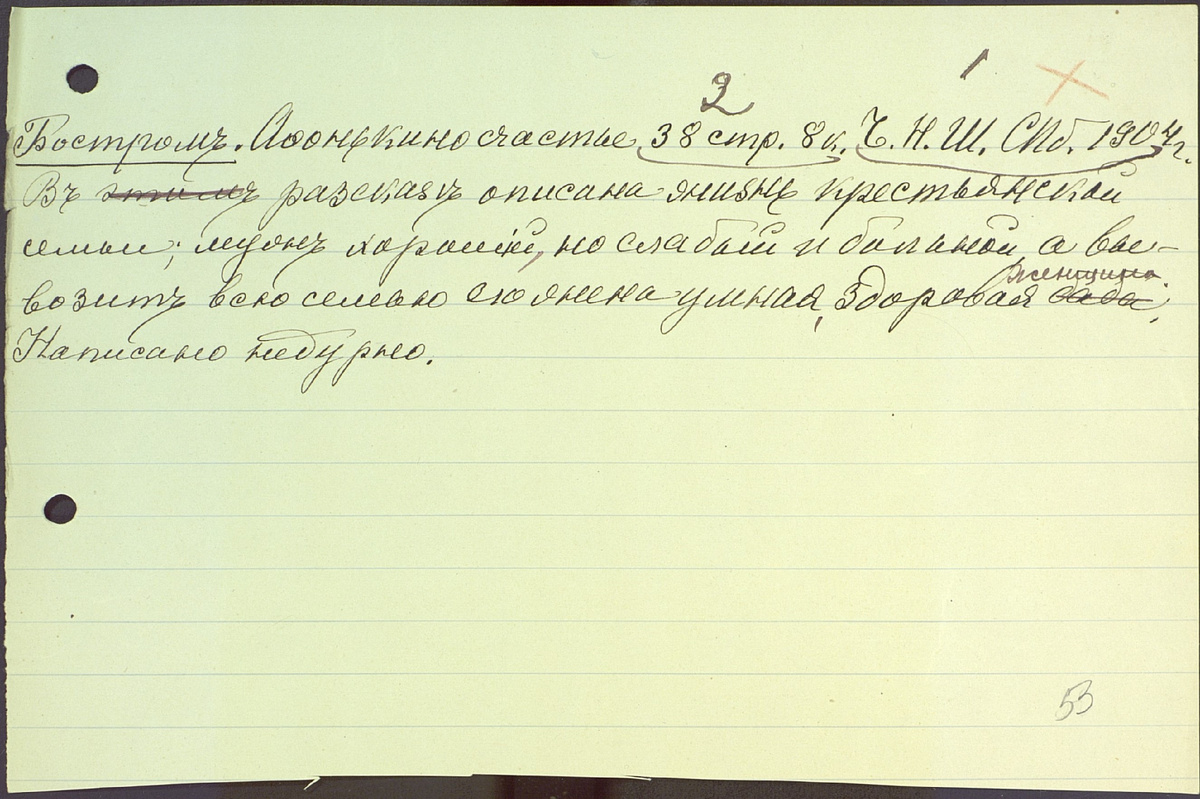 2 1
Бостромъ. Афонькино счастье 38 стр. 8 к. Ч. Н. Ш. СПб. 1904 г.
Въ этомъ разсказѣ описана жизнь крестьянской
семьи; мужъ хорошій, но слабый и больной, а вы-
женщина.
возитъ всю семью его жена умная, здоровая баба,
Написано недурно.
53